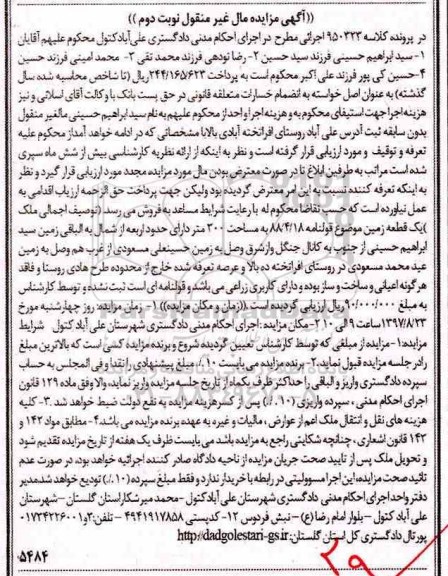 ((آگهی مزایده مال غیر منقول نوبت دوم))
در پرونده کلاسه ۹۵۰۳۲۳ اجرائی مطرح در اجرای احکام مدنی دادگستری علی آباد کتول محکوم علیهم آقایان
۱- سید ابراهیم حسینی فرزند سید حسین ۲- رضا تودهی فرزند محمد تقی ۳- محمد امینی فرزند حسین
۴-حسین کی پور فرزند علی اکبر محکوم است به پرداخت ۲۴۴/۱۶۵/۶۲۳ریال (تا شاخص محاسبه شده سال
گذشته) به عنوان اصل خواسته به انضمام خسارات متعلقه قانونی در حق پست بانک با وکالت آقای اسلانی و نیز
هزینه اجرا جهت استیفای محکوم به و هزینه اجرا واحد از محکوم علیهم به نام سید ابراهیم حسینی مالغیر منقول
بدون سابقه ثبت آدرس علی آباد روستای افراتخته آبادی بالابا مشخصاتی که در ادامه خواهد آمداز محکوم علیه
تعرفه و توقیف و مورد ارزیابی قرار گرفته است و نظر به اینکه از ارائه نظریه کارشناسی بیش از شش ماه سپری
شده است مراتب به طرفین ابلاغ تا در صورت معترض بودن مال مورد مزایده مجدد مورد ارزیابی قرار گیرد و نظر
به اینکه تعرفه کننده نسبت به این امر معترض گردیده بود ولیکن جهت پرداخت حق الزحمه ارزیاب اقدامی به
عمل نیاورده است که حسب تقاضا محکوم له با رعایت شرایط مساعد به فروش می رسد (توصیف اجمالی ملک
)یک قطعه زمین موضوع قولنامه ۸۸/۴/۱۸ به مساحت ۳۰۰ متر دارای حدود اربعه از شمال به الباقی زمین سید
ابراهیم حسینی از جنوب به کانال جنگل وازشرق وصل به زمین حسینعلی مسعودی از غرب هم وصل به زمین
عبد محمد مسعودی در روستای افراتخته ده بالا و عرصه تعرفه شده خارج از محدوده طرح هادی روستا و فاقد
هرگونه اعیانی و ساخت و ساز بوده و دارای کاربری زراعی می باشد و قولنامه ای است ثبت نشده و توسط کارشناس
به مبلغ ۹۰/۰۰۰/۰۰۰ ریال ارزیابی گردیده است.((زمان و مکان مزایده)) ۱- زمان مزایده: روز چهارشنبه مورخ
۱۳۹۷/۸/۲۳ ساعت ۹ الی ۱۰ ۲-مکان مزایده :اجرای احکام مدنی دادگستری شهرستان علی آباد کتول شرایط
مزایده:۱- مزایده از مبلغی که توسط کارشناس تعیین گردیده شروع و برنده مزایده کسی است که بالاترین مبلغ
رادر جلسه مزایده قبول نماید.۲- برنده مزایده می بایست ۱۰٪ مبلغ پیشنهادی را نقدا و فی المجلس به حساب
سپرده دادگستری واریز و الباقی را حداکثر ظرف یکماه از تاریخ جلسه مزایده واریز نماید، والا وفق ماده ۱۲۹ قانون
اجرای احکام مدنی ، سپرده واریزی (۱۰٪) پس از کسر هزینه مزایده به نفع دولت ضبط خواهد شد .۳- کلیه
هزینه های نقل و انتقال ملک اعم از عوارض ، مالیات و غیره به عهده برنده مزایده می باشد.۴- مطابق مواد ۱۴۲ و
۱۴۳ قانون اشعاری ، چنانچه شکایتی راجع به مزایده باشد می بایست ظرف یک هفته از تاریخ مزایده تقدیم شود
و تحویل ملک پس از تایید صحت جریان مزایده از ناحیه دادگاه صادر کننده اجرائیه خواهد بود. در صورت عدم
تائید صحت مزایده، این اجرا مسوولیتی در رابطه با خریدار ندارد و فقط مبلغ سپرده (۱۰٪) تودیع خواهد شد.مدیر
دفتر واحد اجرای احکام مدنی دادگستری شهرستان علی آباد کتول - محمد میر شکار استان گلستان - شهرستان
علی آباد کتول - بلوار امام رضا (ع) - نبش فردوس ۱۲- کدپستی ۴۹۴۱۹۱۷۸۵۸ - تلفن:۳و۰۱۷۳۴۲۲۶۰۰۱
پورتال دادگستری کل استان گلستان: http://dadgolestari-gs.ir
۵۴۸۴
۲۹